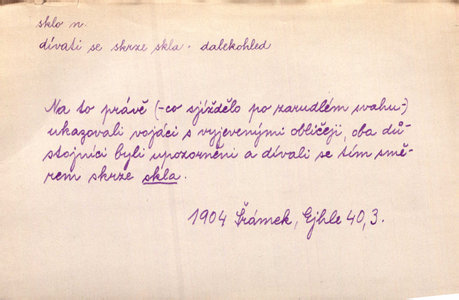 sklo n.
dívati se skrze skla. dalekohled
Na to právě (-co sjíždělo po zarudlém svahu-)
ukazovali vojáci s vyjevenými obličeji, oba dů-
stojníci byli upozorněni a dívali se tím smě-
rem skrze skla.
1904 Šrámek, Ejhle 40,3.